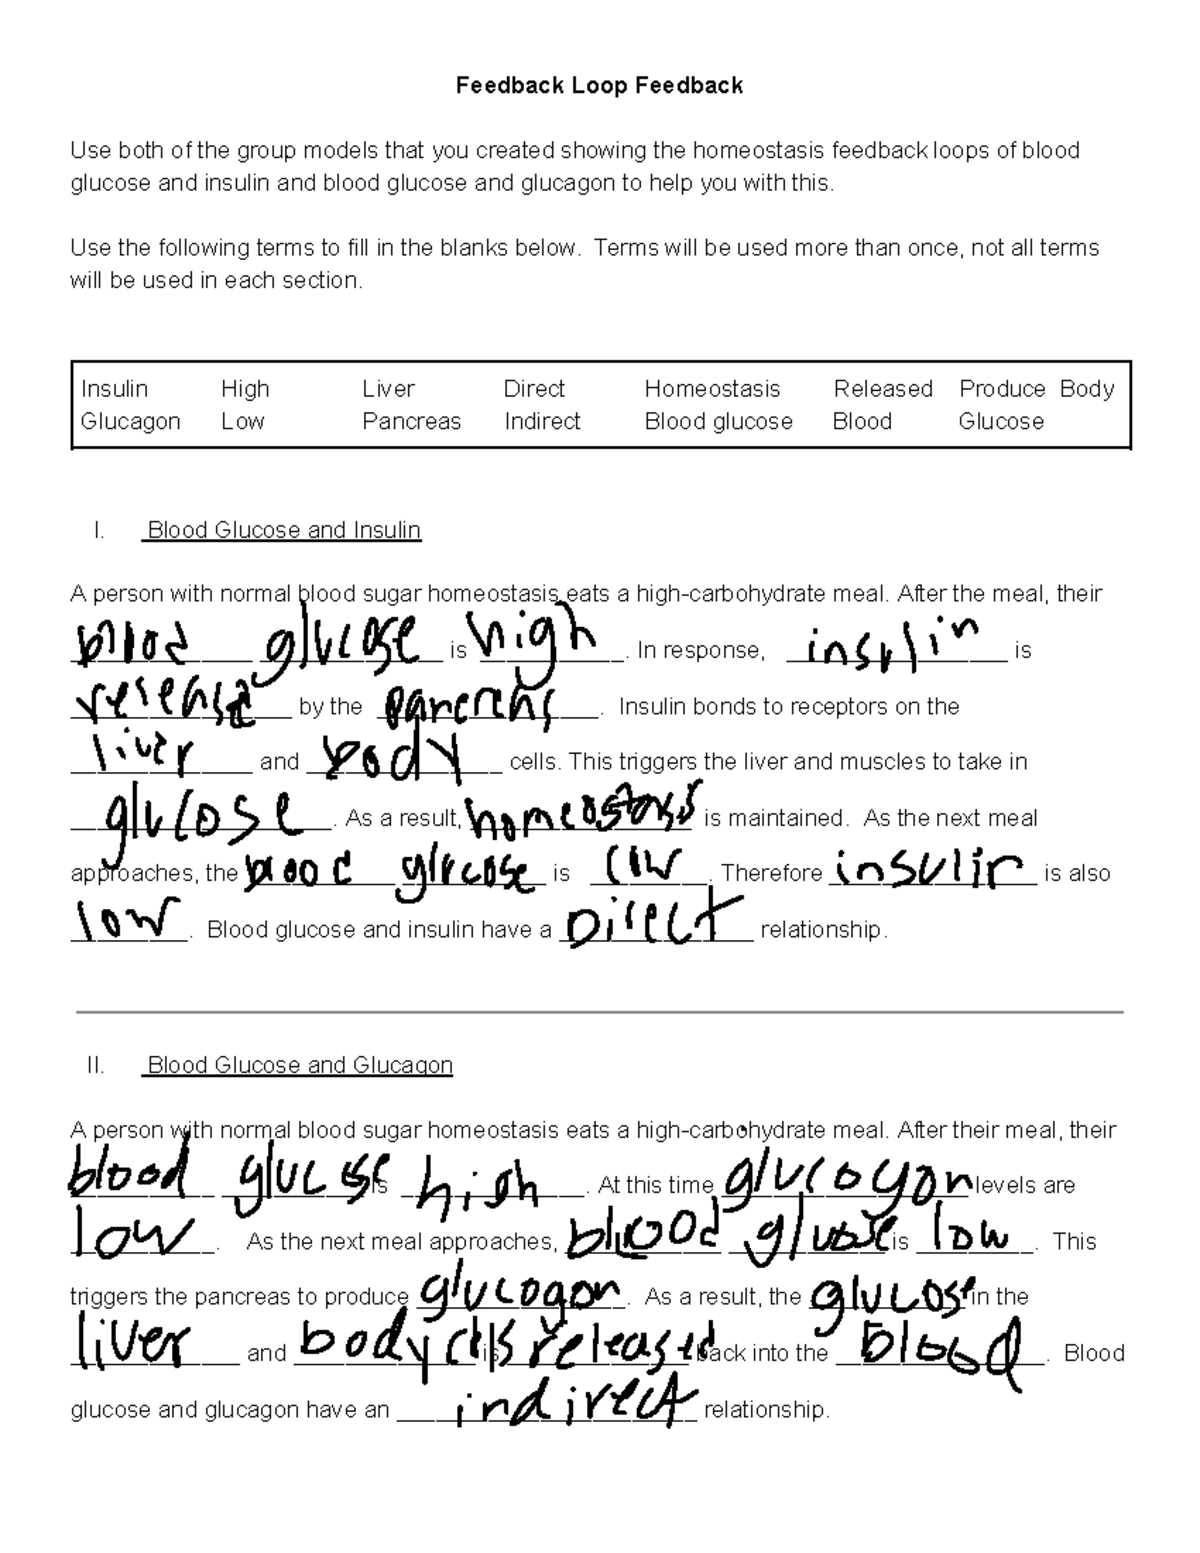 Feedback Loop Feedback
Use both of the group models that you created showing the homeostasis feedback loops of blood
glucose and insulin and blood glucose and glucagon to help you with this.
Use the following terms to fill in the blanks below. Terms will be used more than once, not all terms
will be used in each section.
Insulin High Liver Direct Homeostasis Released Produce Body
Glucagon Low Pancreas Indirect Blood glucose Blood Glucose
I. Blood Glucose and Insulin
A person with normal blood sugar homeostasis eats a high-carbohydrate meal. After the meal, their
blood glucose is high. In response, insulin is
by the. Insulin bonds to receptors on the
liver and body cells. This triggers the liver and muscles to take in
glucose. As a result, homeostasis is maintained. As the next meal
approaches, the blood glucose is low. Therefore insulin is also
low. Blood glucose and insulin have a Direct relationship.
II. Blood Glucose and Glucagon
A person with normal blood sugar homeostasis eats a high-carbohydrate meal. After their meal, their
blood glucose is high. At this time glucogon levels are
low. As the next meal approaches, blood glucose is low. This
triggers the pancreas to produce glucogon. As a result, the glucose in the
liver and body cells is released back into the blood. Blood
glucose and glucagon have an indirect relationship.